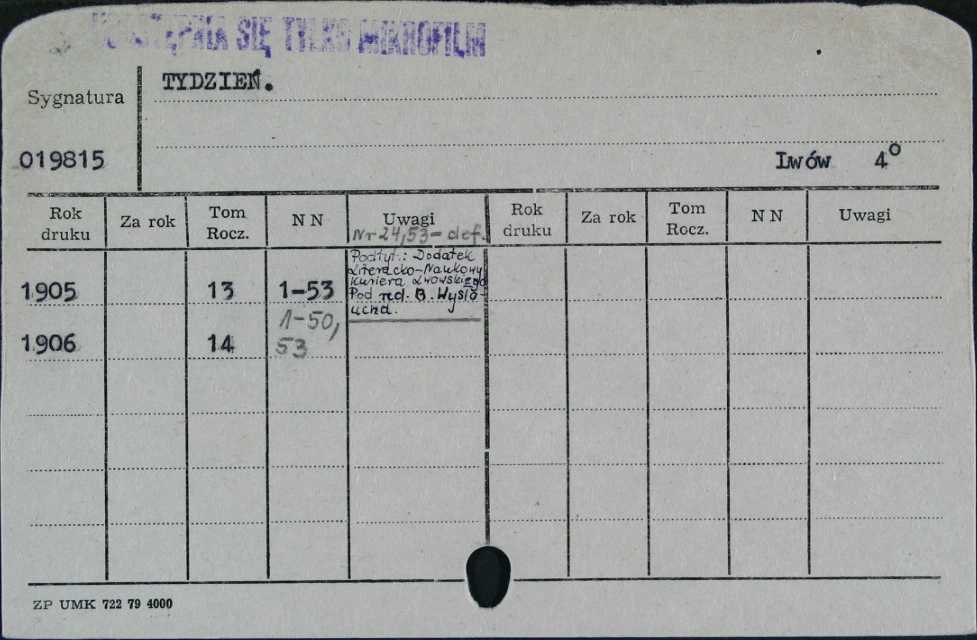 SIĘ TYLKO MIKROFILM
TYDZIEŃ.
Sygnatura
019815
Lwów 4°
Rok druku Za rok Tom Rocz. N N Uwagi Rok druku Za rok Tom Rocz. N N Uwagi
Nr 24,53 - def.
Podtyt.: Dodatek
Literacko-Naukowy
Kuriera Lwowskiego
1905 13 1-53 Pod red. B. Wysło-
ucha.
1-50,
1906 14 53
ZP UMK 722 79 4000